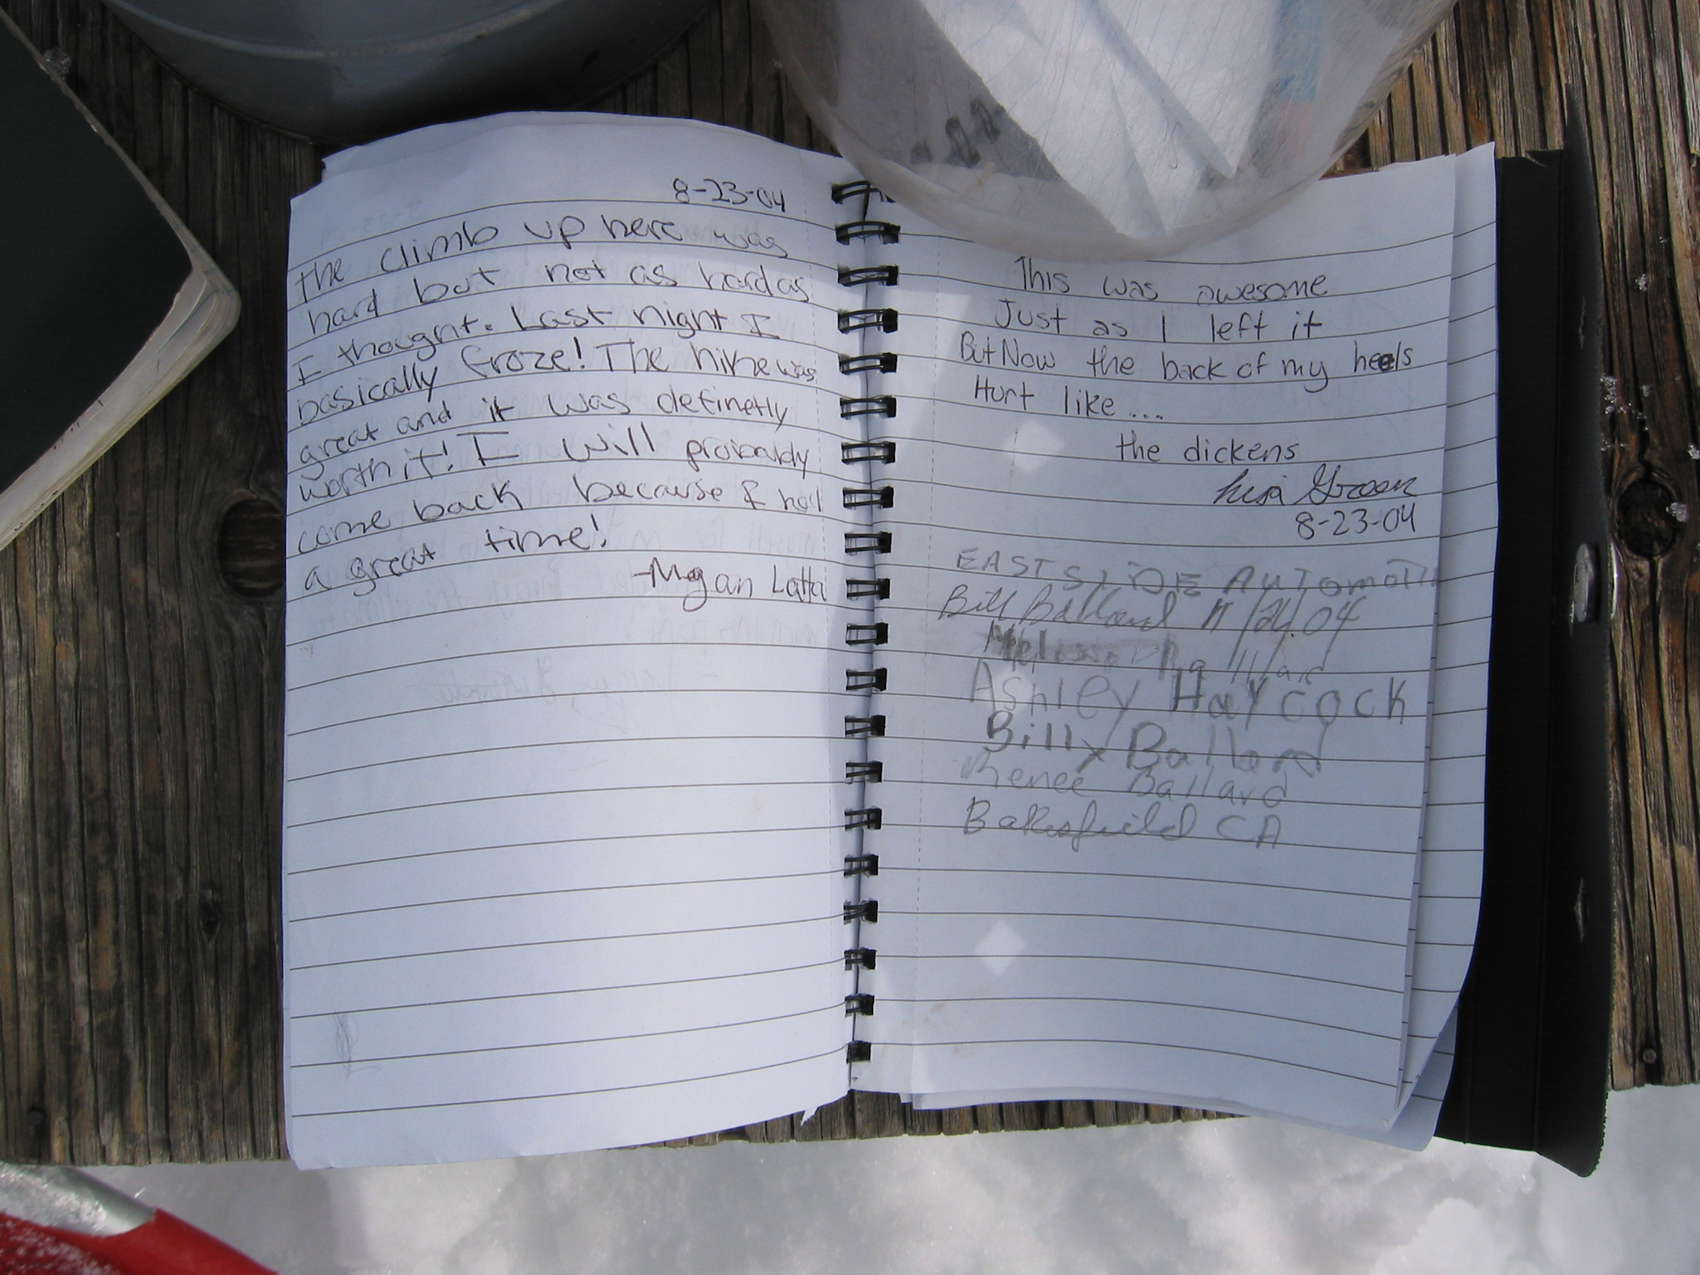 8-23-04
The climb up here was
hard but not as hard as
I thought. Last night I
basically froze! The hike was
great and it was definetly
worth it! I will probably
come back because I had
a great time!
-Megan Latta
This was awesome
Just as I left it
But Now the back of my heels
Hurt like...
the dickens
Lisa Green
8-23-04
EAST SIDE AUTOmotive
Bill Ballard 11/26/04
Melissa Ballard
Ashley Haycock
Billy Ballard
Renee Ballard
Bakersfield CA